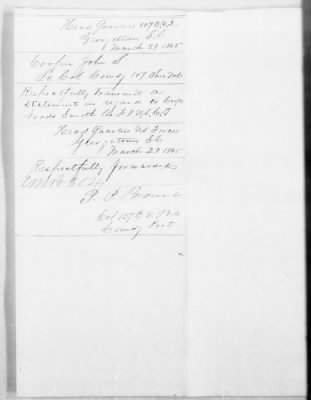 Head Quarters 107 O.V.I.
Georgetown S.C.
March 29 1865
Cooper John S
Lt Col Comdg 107 Ohio Vols
Respectfully transmit a
Statement in regard to Corp
Smith Co
Head Quarters US Forces
Georgetown SC
March 29 1865
Respectfully forwarded
P. P. Brown
Col 157th N.Y. Vols
Comdg Post